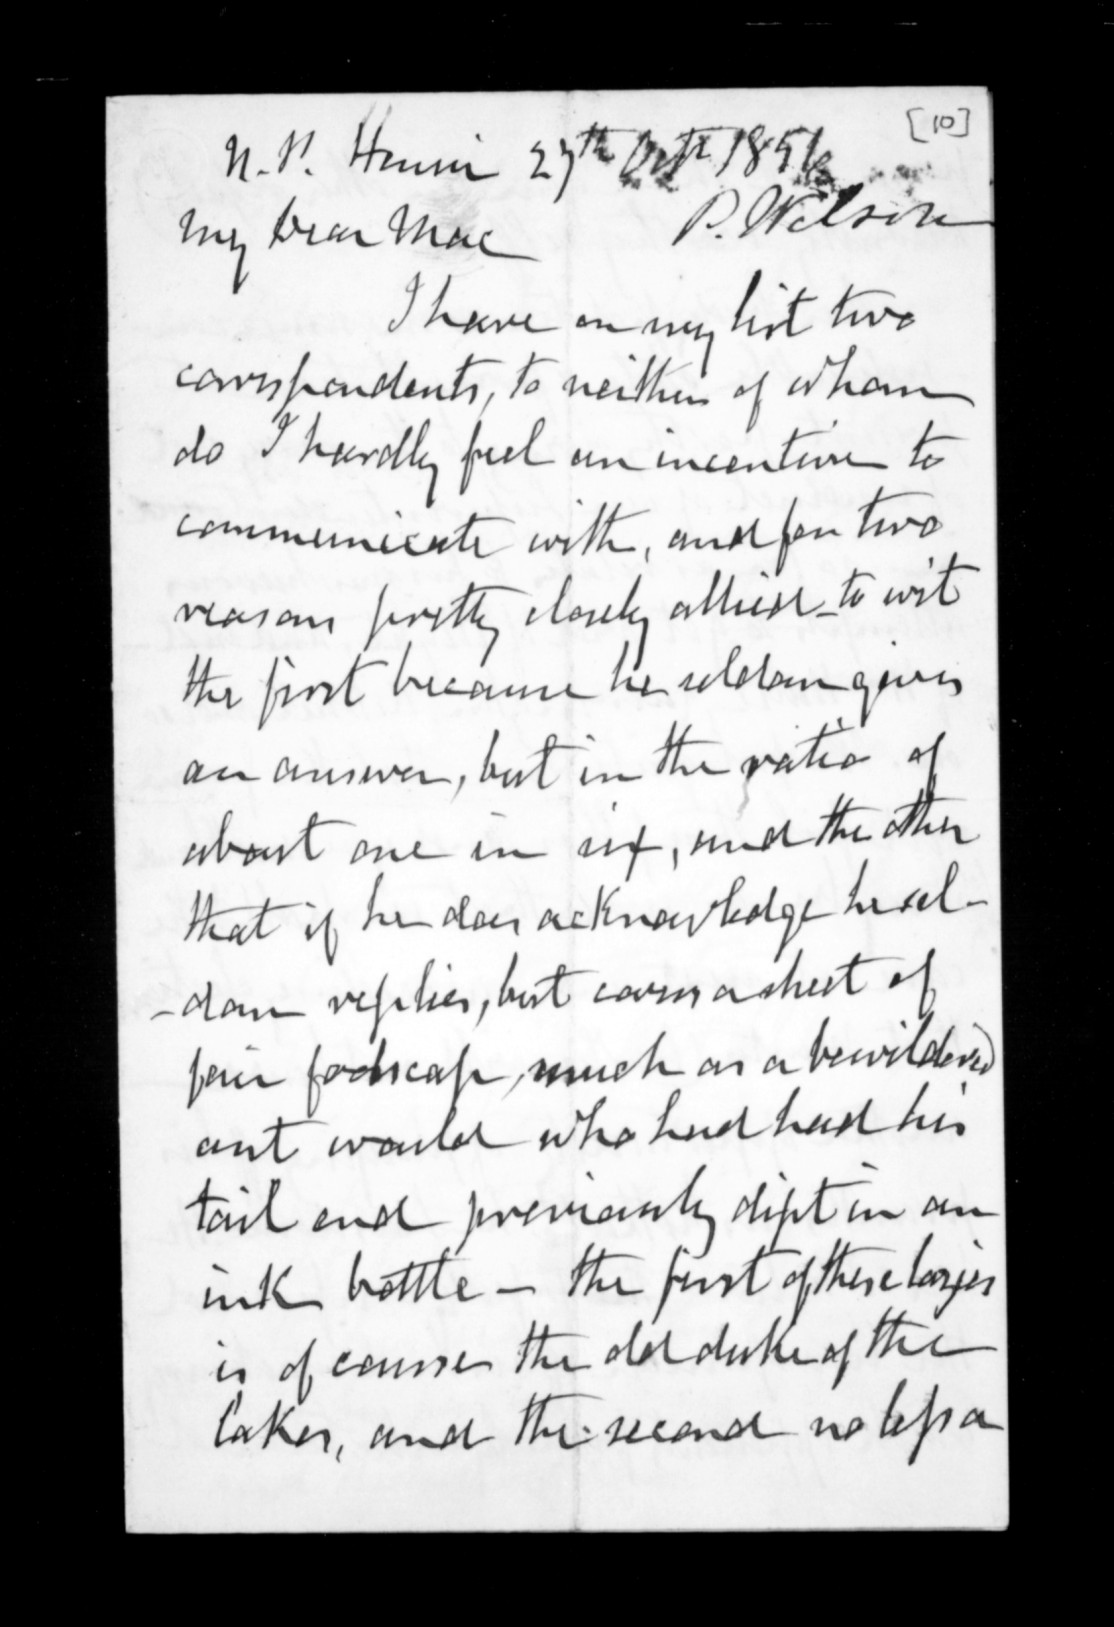 [10]
N.P. 27th Octr 185
P. Wilson
My Dear Mac
I have on my list two
correspondents, to neither of whom
do I hardly feel an incentive to
communicate with, and for two
reasons pretty closely allied - to wit
the first because he seldom gives
an answer, but in the ratio of
about one in six, and the other
that if he does acknowledge he sel-
-dom replies, but covers a sheet of
fair foolscap, much as a bewildered
ant would who had had his
tail end previously dipt in an
ink bottle - the first of these
is of course the old duke of the
Lakes, and the second no less a